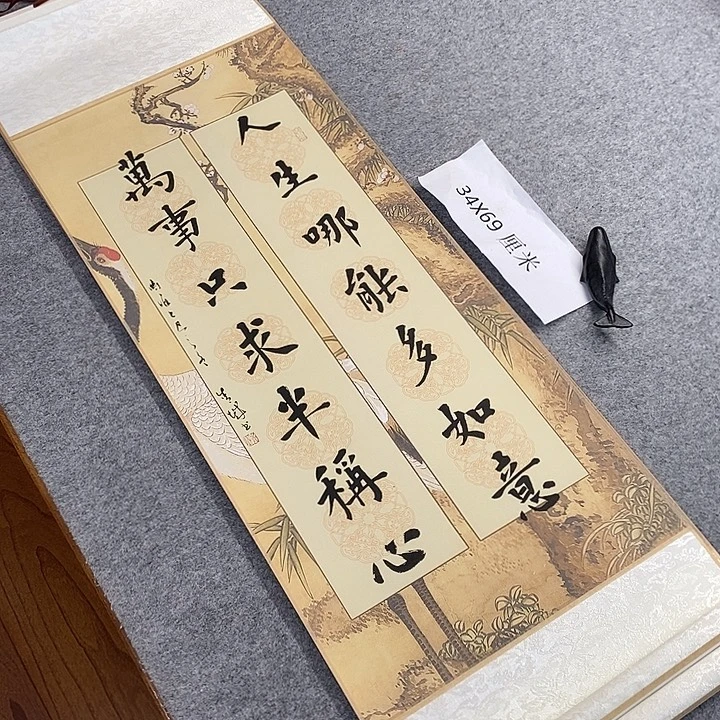 人生哪能多如意
萬事只求半稱心
34X69 厘米